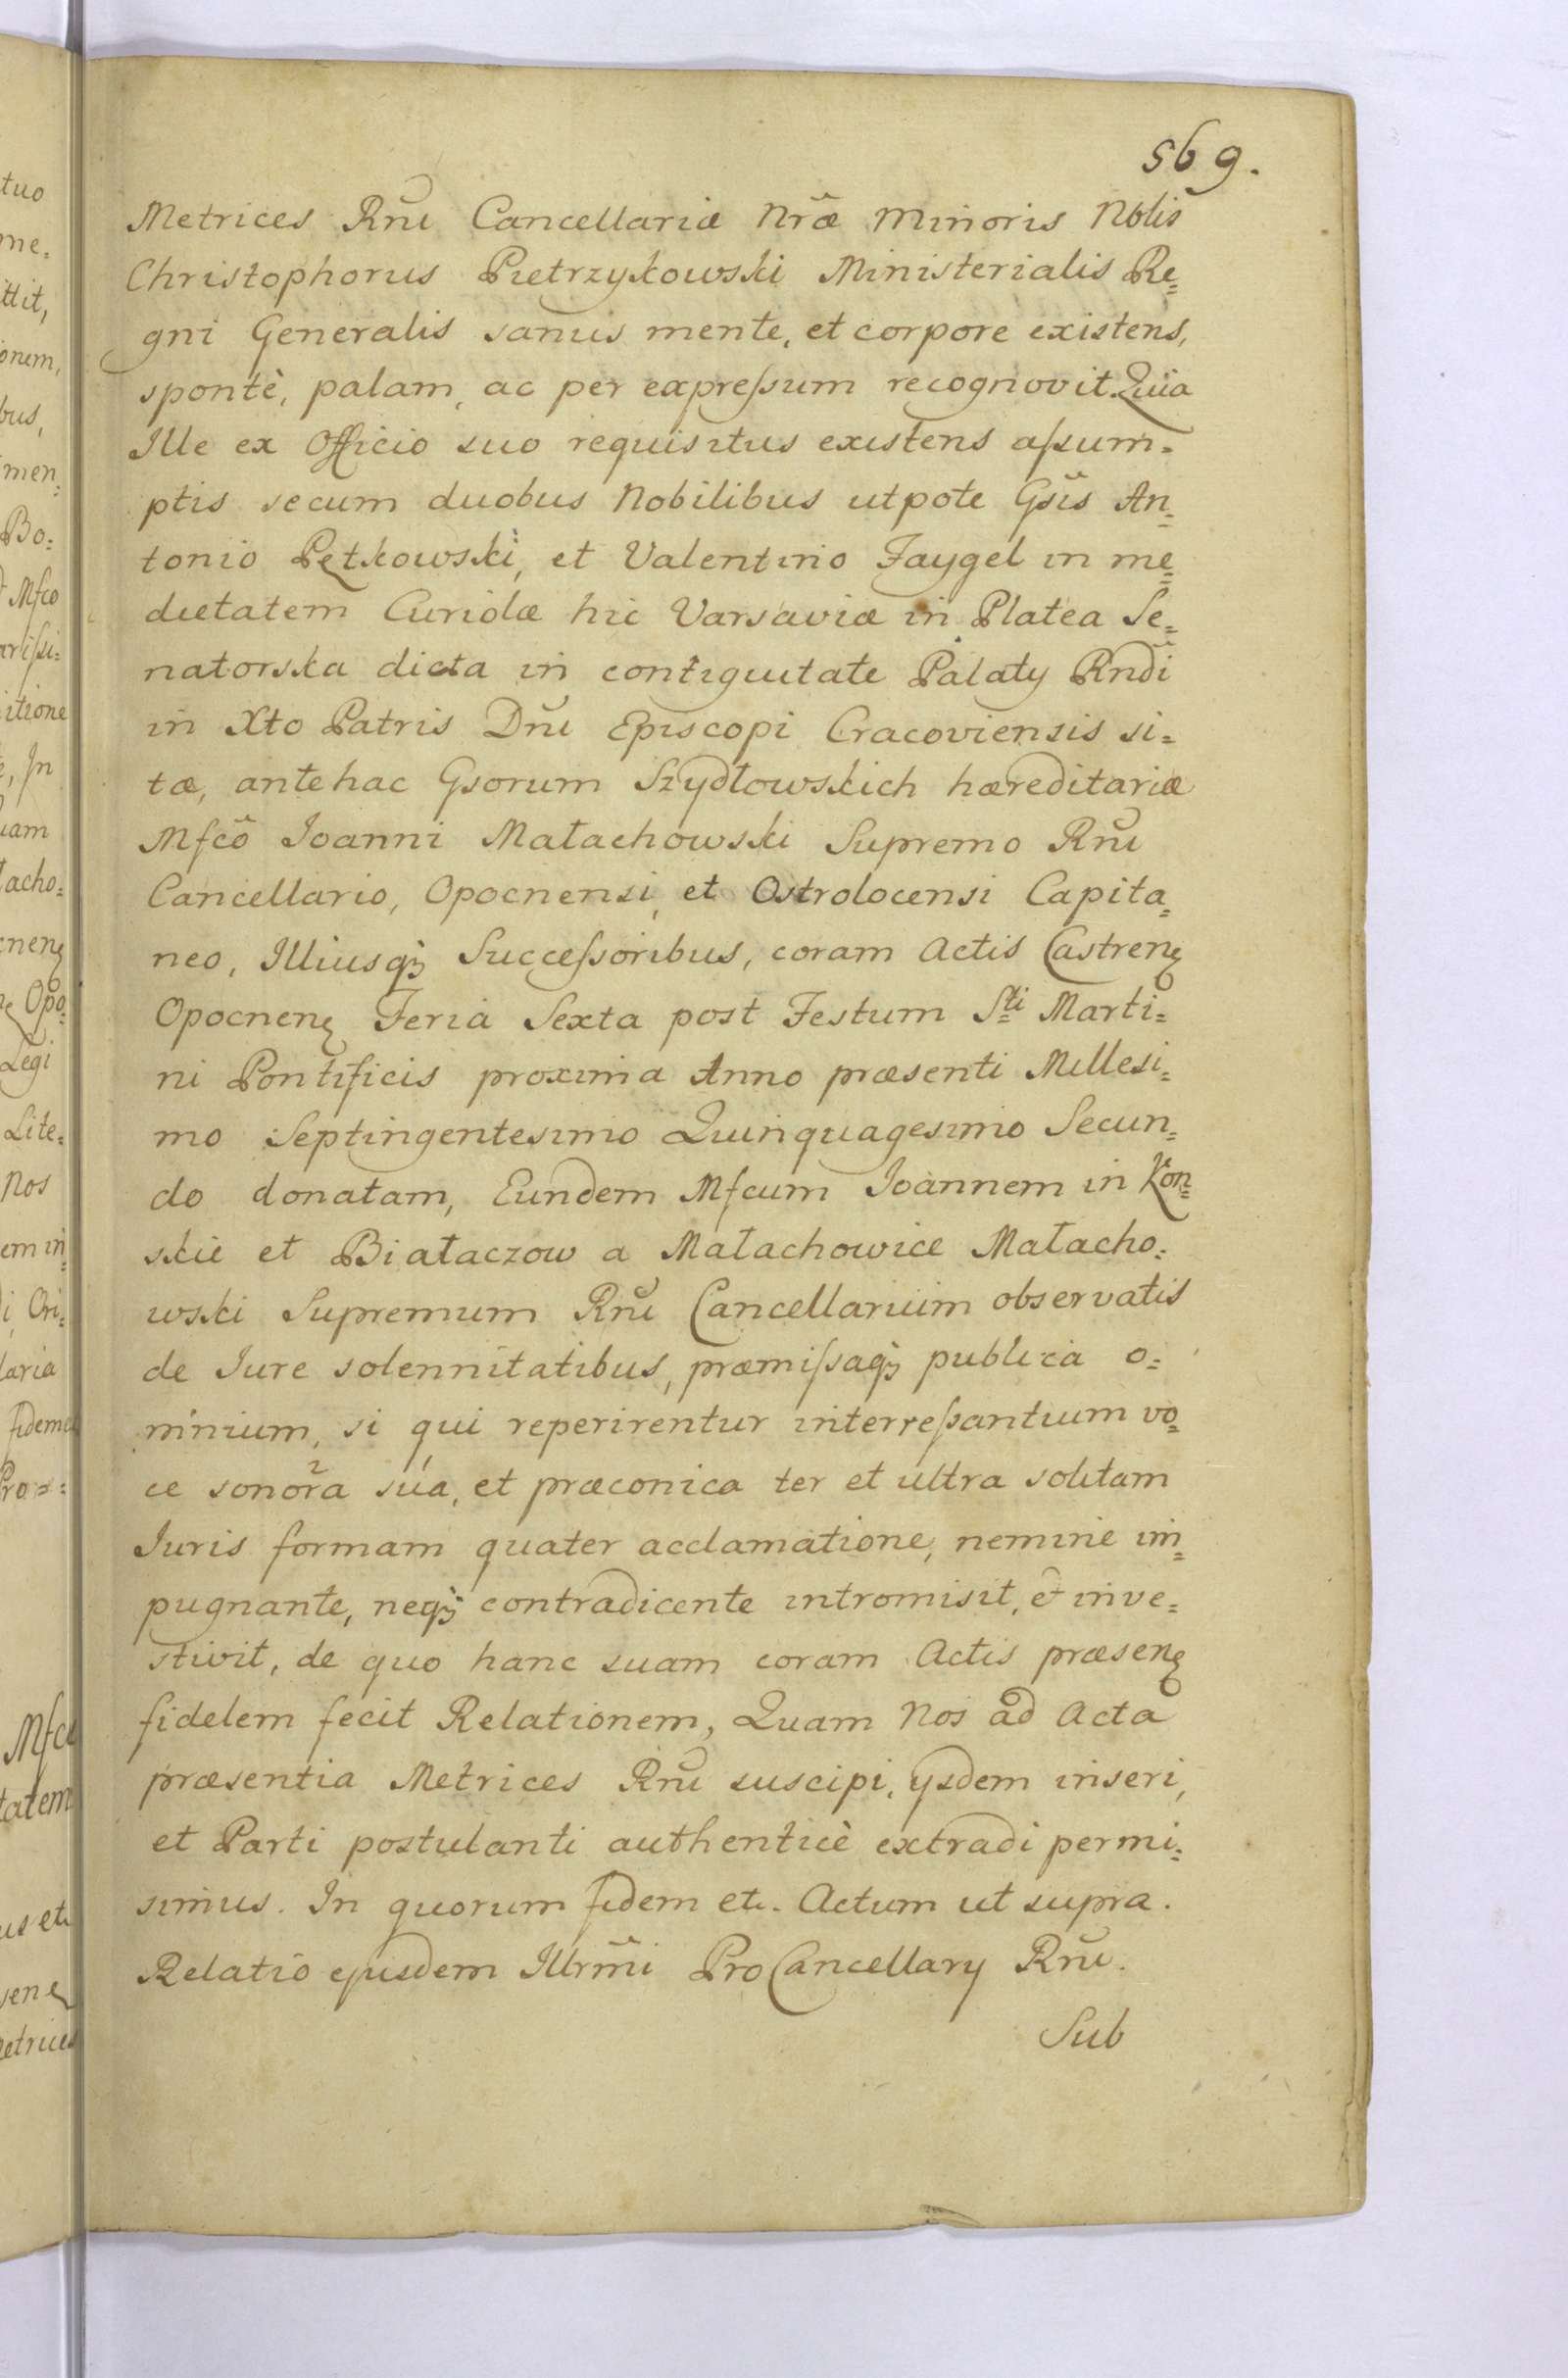 569.
Metrices Rñi Cancellariæ Nr̃æ Minoris Nblis
Christophorus Pietrzykowski Ministerialis Re=
gni Generalis sanus mente, et corpore existens,
spontè, palam, ac per expreſsum recognovit. Quia
Ille ex Officio suo requisitus existens aſsum=
ptis secum duobus Nobilibus utpote Gs̃is An=
tonio Pętkowski, et Valentino Faygel in me=
dietatem Curiolæ hic Varsaviæ in Platea Se=
natorska dicta in contiguitate Palaty Rndĩ
in Xto Patris Dñi Episcopi Cracoviensis si=
tæ, antehac Gsorum Szydłowskich hæreditariæ
Mfcõ Ioanni Małachowski Supremo Rñi
Cancellario, Opocnensi, et Ostrolocensi Capita=
neo, Illiusqȝ Succeſsoribus, coram Actis Castrenȩ
Opocnenȩ Feria Sexta post Festum Sti Marti=
ni Pontificis proxima Anno præsenti Millesi=
mo Septingentesimo Quinquagesimo Secun=
do donatam, Eundem Mfcum Ioannem in Kon=
skie et Białaczow a Małachowice Małacho=
wski Supremum Rñi Cancellarium observatis
de Iure solennitatibus, præmiſsaqȝ publica o=
mnium, si qui reperirentur interreſsantium vo=
ce sonor̃a sua, et præconica ter et ultra solitam
Iuris formam quater acclamatione, nemine im=
pugnante, neqȝ contradicente intromisit, et inve=
stivit, de quo hanc suam coram Actis præsenȩ
fidelem fecit Relationem, Quam Nos ad Acta
præsentia Metrices Rñi suscipi, ysdem inseri,
et Parti postulanti authenticè extradi permi=
simus. In quorum fidem etc. Actum ut supra.
Relatio ejusdem Illrm̃i ProCancellary Rñi.
Sub